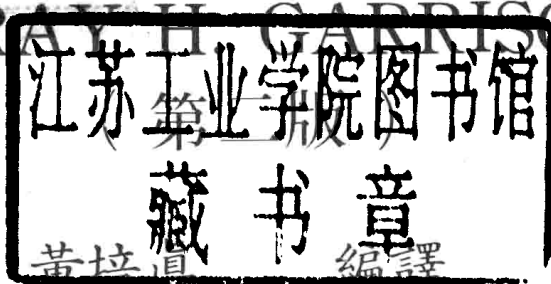 RAY H GARRISO
江苏工业学院图书馆
（第二版）
藏书章
黃培真 編譯